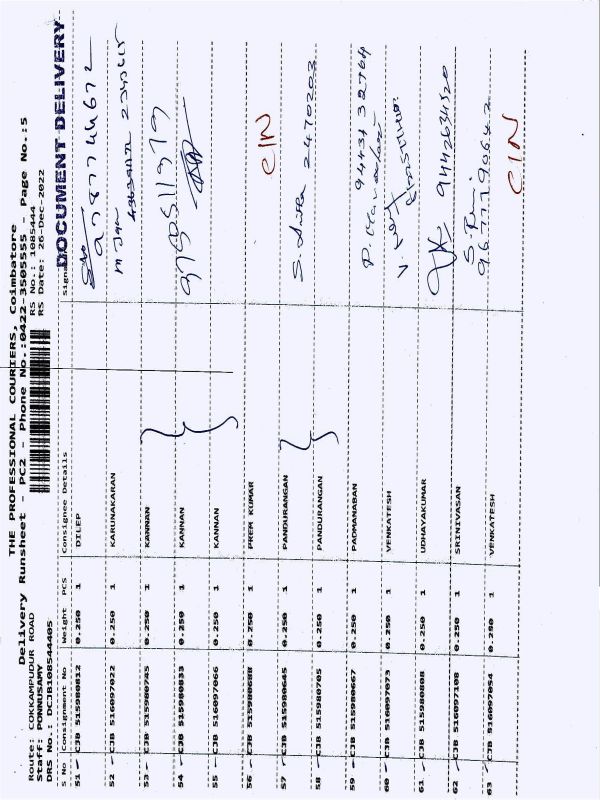 THE PROFESSIONAL COURIERS, Coimbatore
Delivery Runsheet - PC2 - Phone No.:0422-3505555 - Page No.:5
Route: COKKAMPUDUR ROAD RS No.: 1085444
Staff: PONNUSAMY RS Date: 20-Dec-2022
DRS No.: DCJB108544405 DOCUMENT DELIVERY
S No Consignment No Weight PCS Consignee Details
51 CJB 515980812 0.250 1 DILEP
52 CJB 516097022 0.250 1 KARUNAKARAN
53 CJB 515980745 0.250 1 KANNAN
54 CJB 515980833 0.250 1 KANNAN
55 CJB 516097066 0.250 1 KANNAN
56 CJB 515980688 0.250 1 PREM KUMAR CIN
57 CJB 515980645 0.250 1 PANDURANGAN S. 2470203
58 CJB 515980705 0.250 1 PANDURANGAN
59 CJB 515980667 0.250 1 PADMANABAN
60 CJB 516097073 0.250 1 VENKATESH
61 CJB 515980808 0.250 1 UDHAYAKUMAR 9442634520
62 CJB 516097108 0.250 1 SRINIVASAN
63 CJB 516097054 0.250 1 VENKATESH CIN